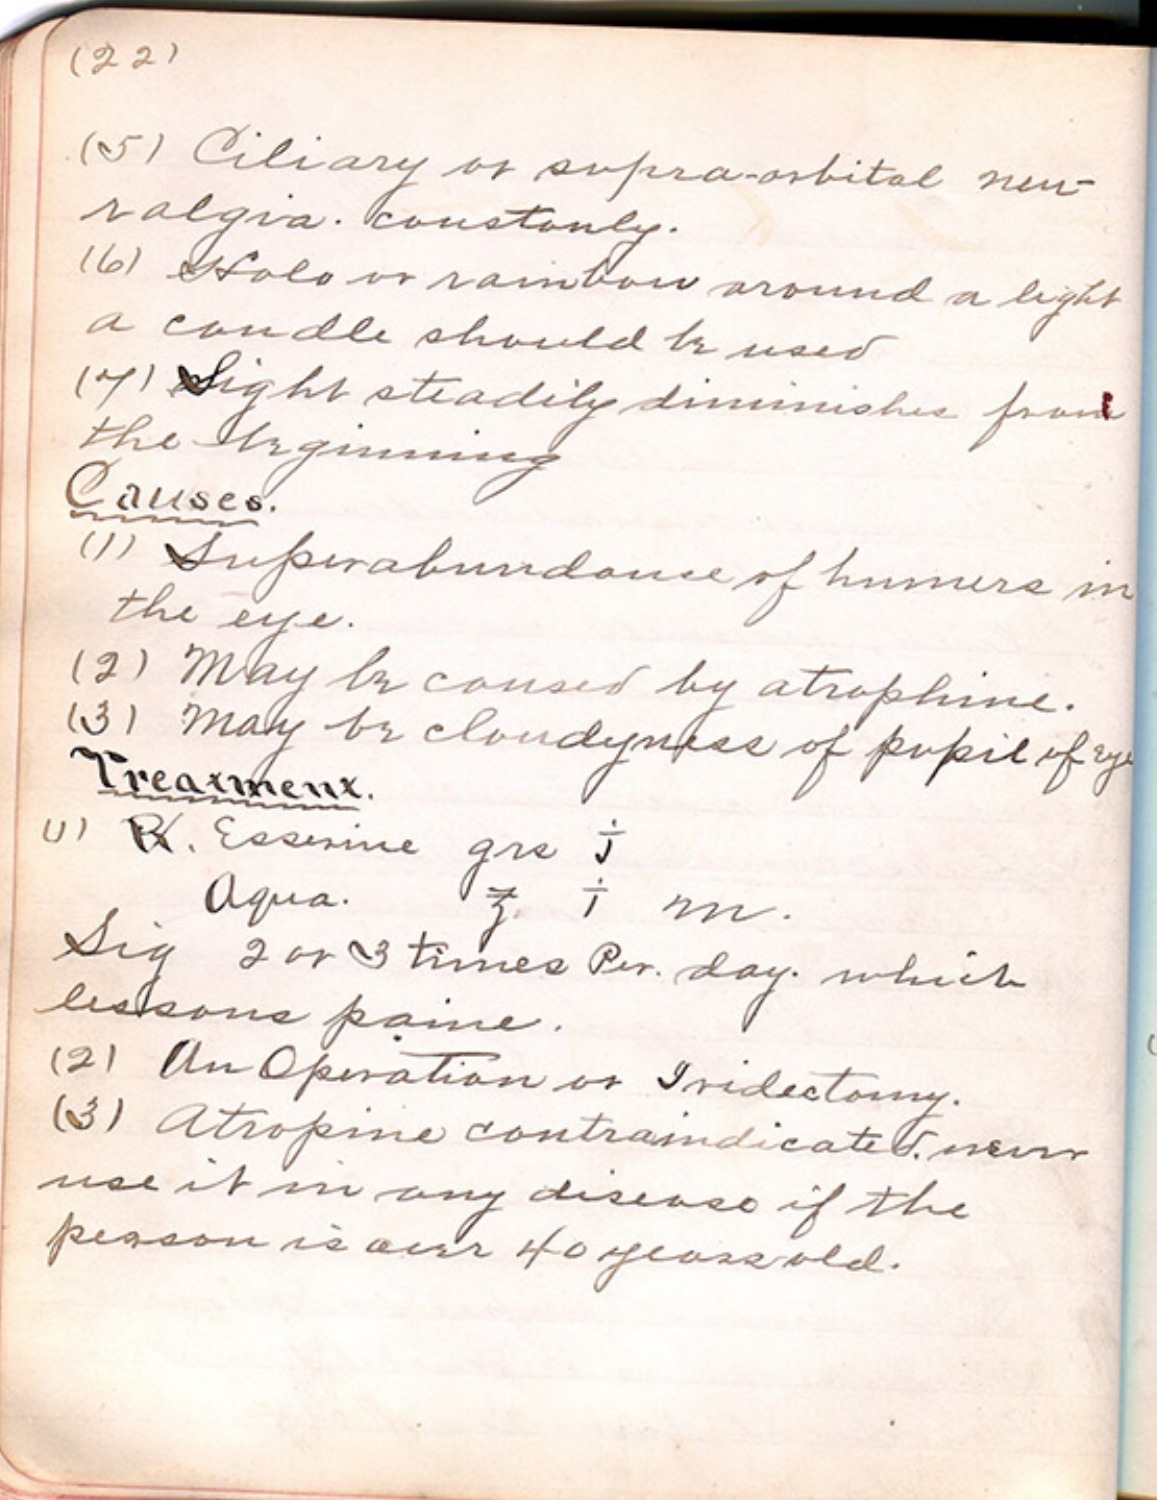 (22)
(5) Ciliary or supra-orbital neu-
ralgia. constanly.
(6) Halo or rainbow around a light
a candle should be used
(7) Sight steadily diminishes from
the beginning
Causes.
(1) Superabundance of humers in
the eye.
(2) May be caused by atrophine.
(3) May be cloudyness of pupil of eye
Treatment.
(1) Rx. Esserine grs j
Aqua. ʒ i m.
Sig 2 or 3 times Per. day. which
lessons paine.
(2) An Operation or Iridectomy.
(3) Atropine contraindicated. never
use it in any disease if the
person is over 40 years old.